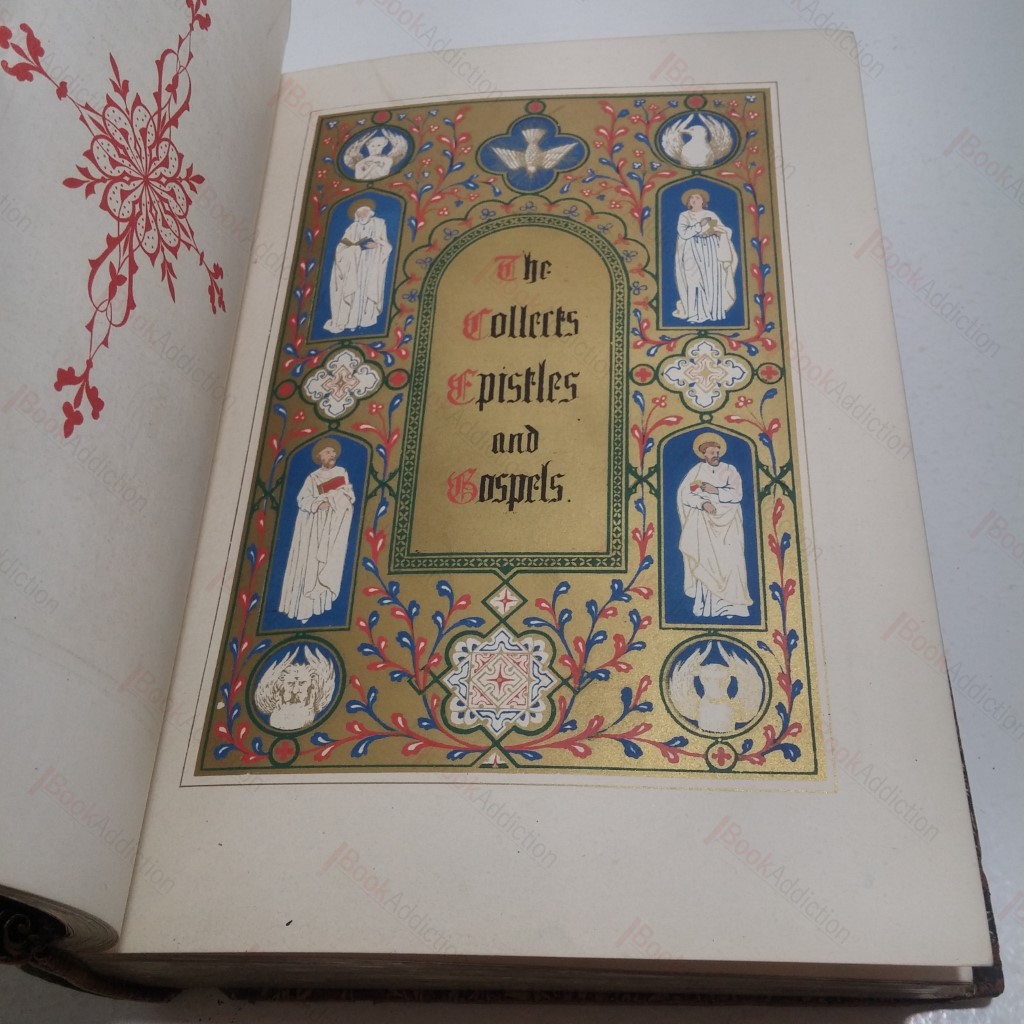 The
Collects
Epistles
and
Gospels.
BookAddiction